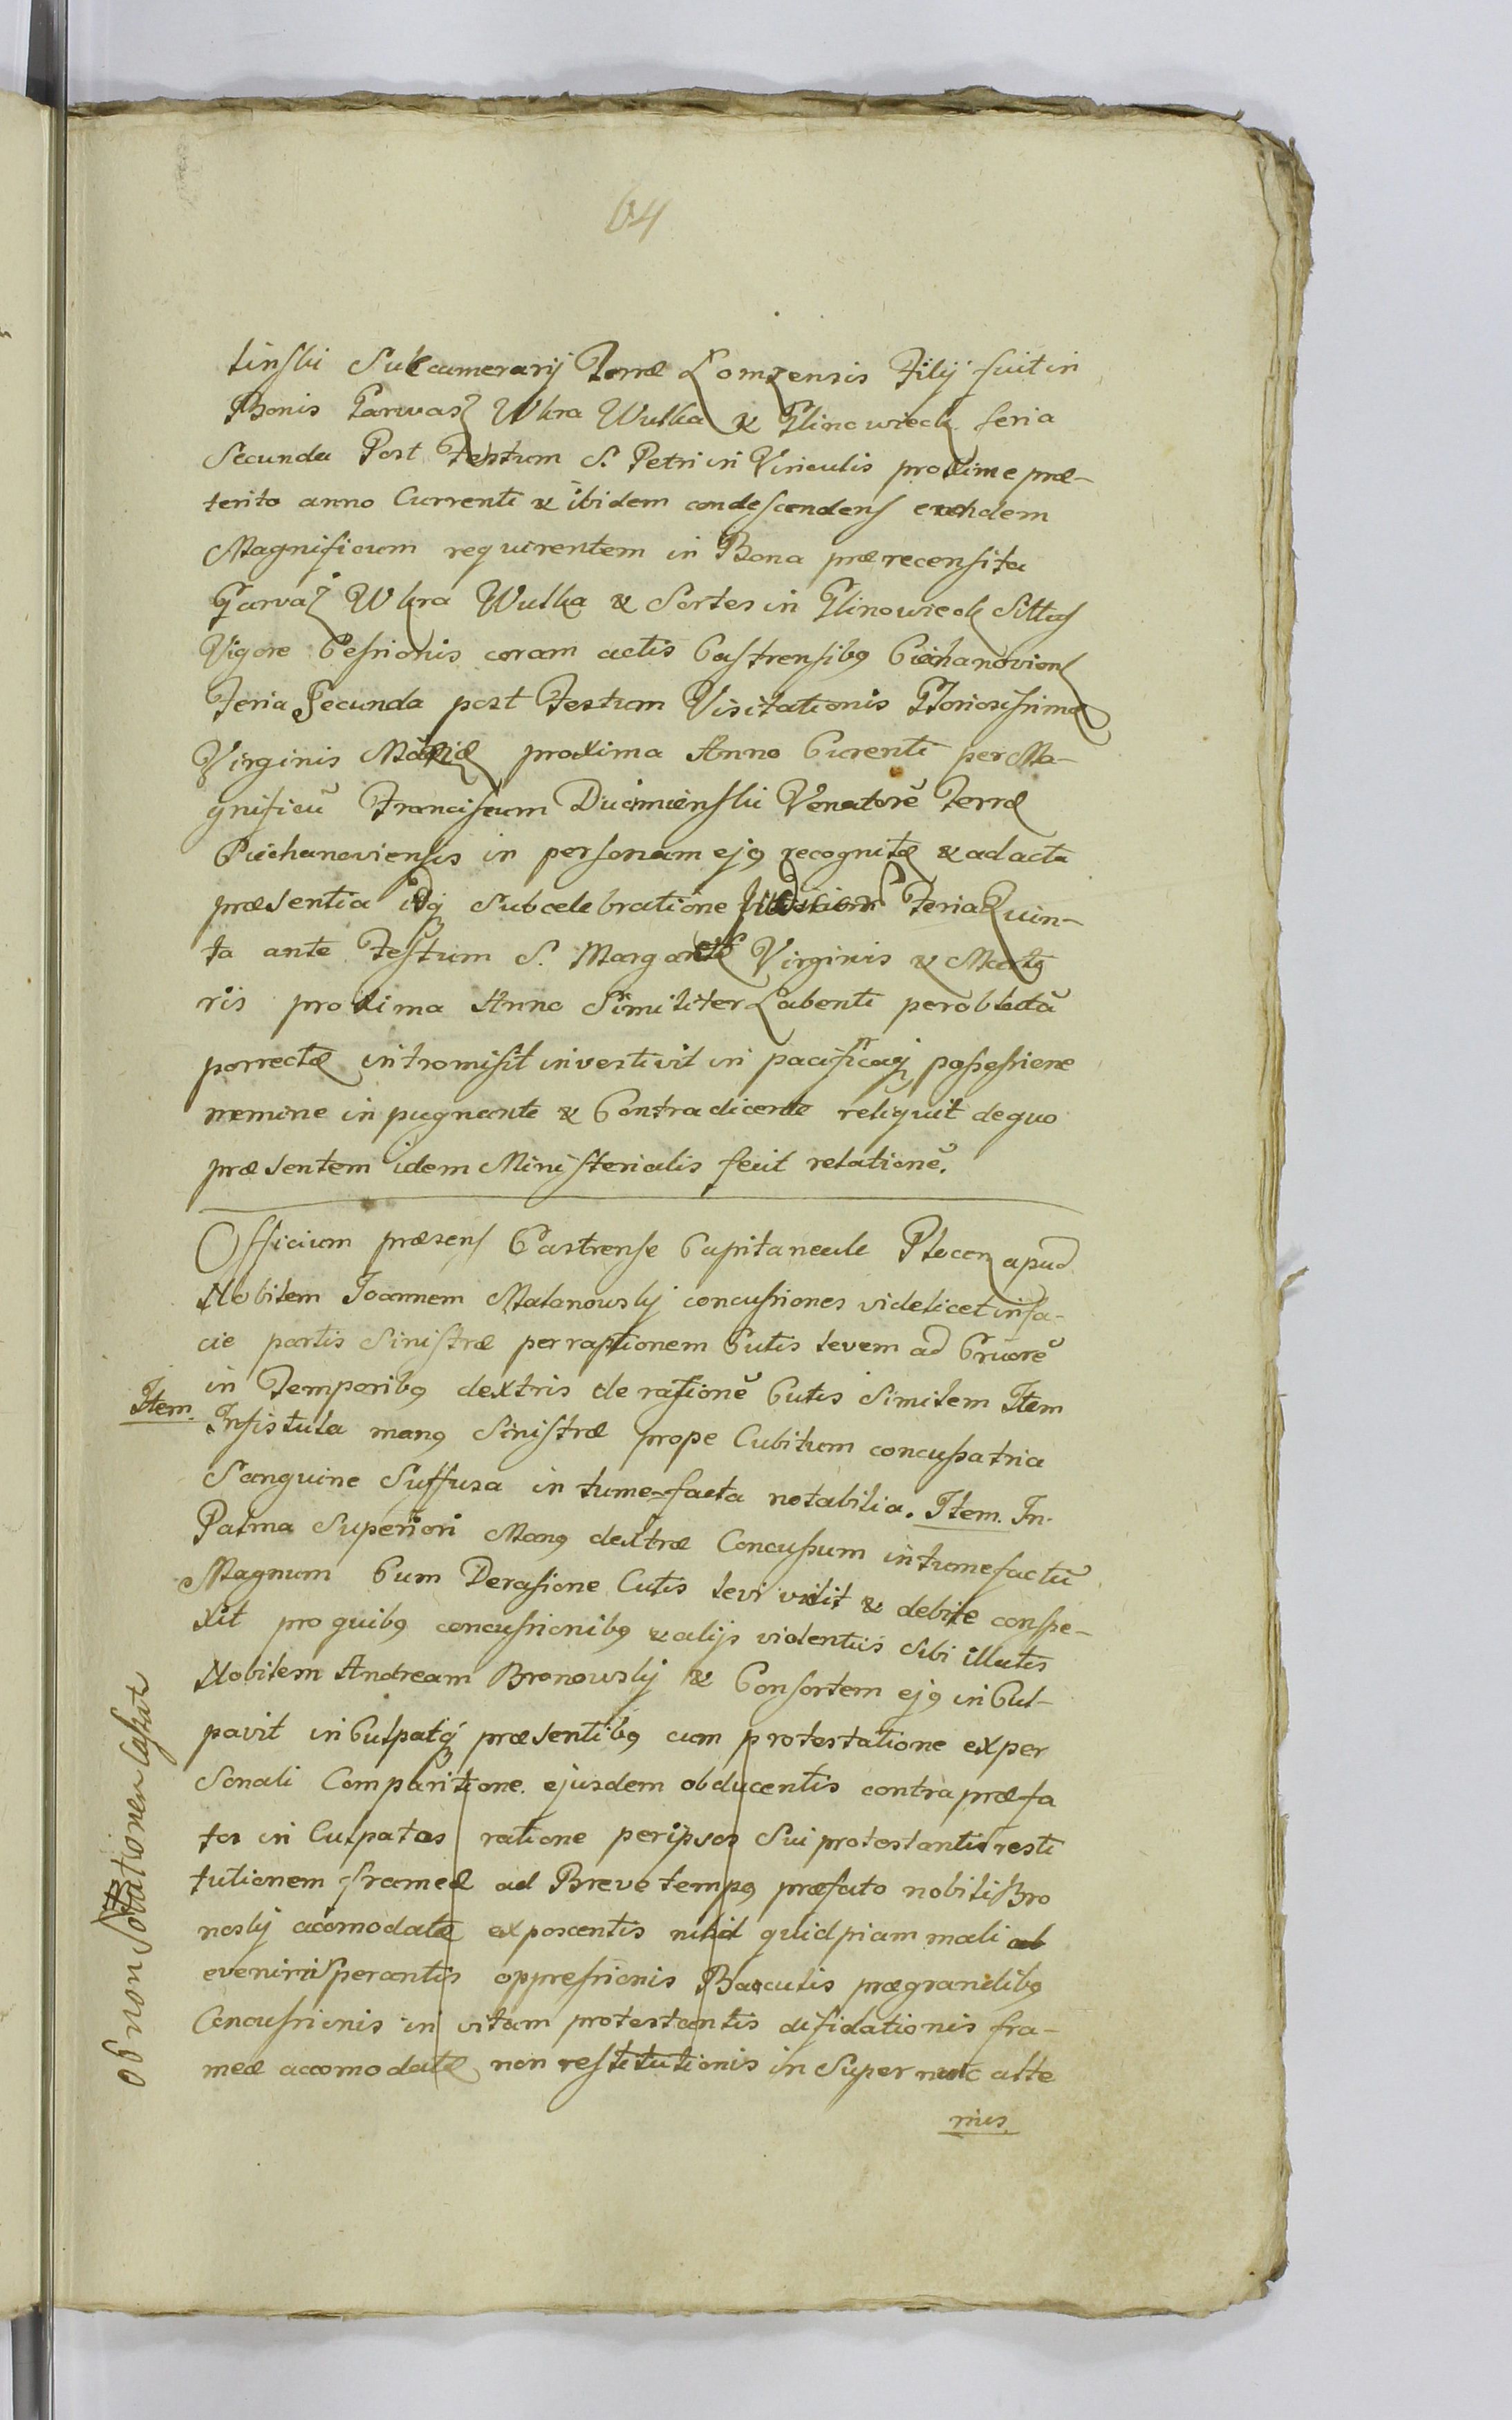 64
linski Subcamerarij Terræ Lomzensis Filij fuit in
Bonis Garwarz Wkra Wulka & Glinowieck feria
Secunda Post Festum S. Petri in Vinculis proxime præ-
terito anno Currenti & ibidem condescendens eundem
Magnificum requirentem in Bona prærecensita
Garwarz Wkra Wulka & Sortes in Glinowieck Sittas
Vigore Cessionis coram actis Castrensibus Ciechanoviens
Feria Secunda post Festum Visitationis Gloriosissimæ
Virginis Mariæ proxima Anno Curenti per Ma-
gnificũ Franciscum Venatorẽ Terræ
Ciechanoviensis in personam ejus recognitæ & ad acta
præsentia idq; Sub celebratione Feria Quin-
ta ante Festum S. Margaretæ Virginis & Marty
ris proxima Anno Similiter Labenti per oblatã
porrectæ intromisit investivit in pacificaq; possessione
nemine inpugnante & Contradicente reliquit de quo
præsentem idem Ministerialis fecit relationẽ.
Officium præsens Castrense Capitaneale Plocen apud
Nobilem Joannem Malanowskj concussiones videlicet in fa-
cie partis Sinistræ perraptionem Cutis levem ad Cruorẽ
in Temporibus dextris derasionẽ Cutis Similem Item
Item. In fistula manus Sinistræ prope Cubitum concussa tria
Sanguine Suffusa in tume=facta notabilia. Item. In.
Palma Superiori Manus dextræ Concussum intumefactũ
Magnum Cum Derasione Cutis levi vidit & debite conspe-
xit pro quibus concussionibus & alijs violentiis Sibi illatis
Nobilem Andream Bronowskj & Consortem ejus inCul-
pavit inCulpatq; præsentibus cum protestatione ex per
Sonali Comparitione ejusdem obducentis contra præfa
tos in Culpatos ratione per ipsos Sui protestantis resti
tutionem frameæ ad Breve tempus præfato nobili Bro
noskj acomodatæ exposcentis nihil quidpiam mali ab
eveniri Sperantis oppressionis Baculis prægrandibus
Concussionis in vitam protestantis difidationis fra-
meæ accomodatæ non restitutionis in Super nunc alte
rius
Ob non